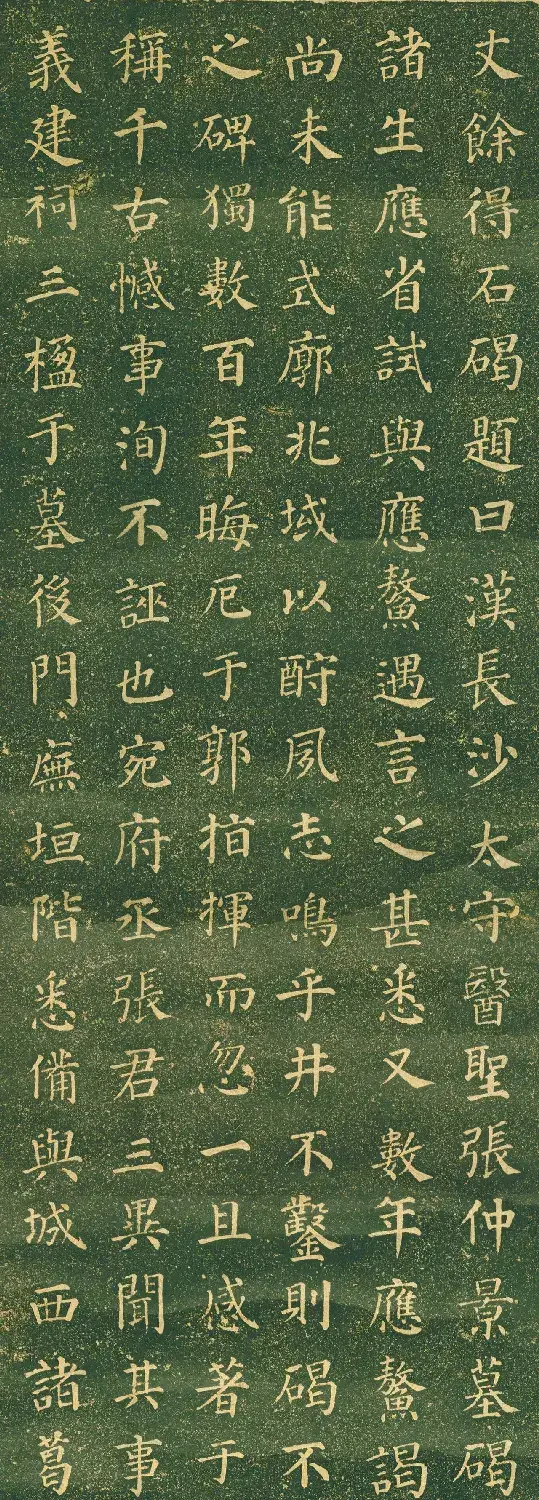 丈餘得石碣題曰漢長沙太守醫聖張仲景墓碣
諸生應省試與應鰲遇言之甚悉又數年應鰲謁
尚未能式廓兆域以酧夙志鳴乎井不鑿則碣不
之碑獨數百年晦厄于郭指揮而忽一旦感著于
稱千古憾事洵不誣也宛府丞張君三異聞其事
義建祠三楹于墓後門廡垣階悉備與城西諸葛